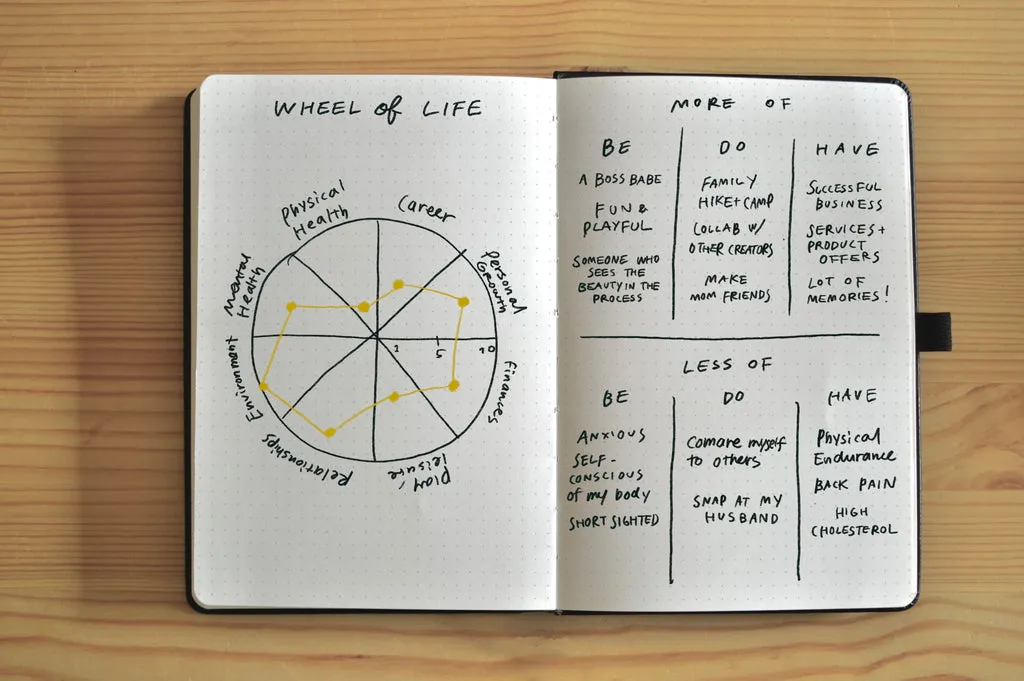 WHEEL of LIFE
Physical
Health
Career
Personal
Growth
Finances
Play/
leisure
Relationships
Environment
Mental
Health
2
5
10
MORE OF
BE
A BOSS BABE
FUN &
PLAYFUL
SOMEONE WHO
SEES THE
BEAUTY IN THE
PROCESS
DO
FAMILY
HIKE + CAMP
COLLAB W/
OTHER CREATORS
MAKE
MOM FRIENDS
HAVE
SUCCESSFUL
BUSINESS
SERVICES +
PRODUCT
OFFERS
LOT OF
MEMORIES!
LESS OF
BE
ANXIOUS
SELF-
CONSCIOUS
of my body
SHORT SIGHTED
DO
Comare myself
to others
SNAP AT MY
HUSBAND
HAVE
Physical
Endurance
BACK PAIN
HIGH
CHOLESTEROL